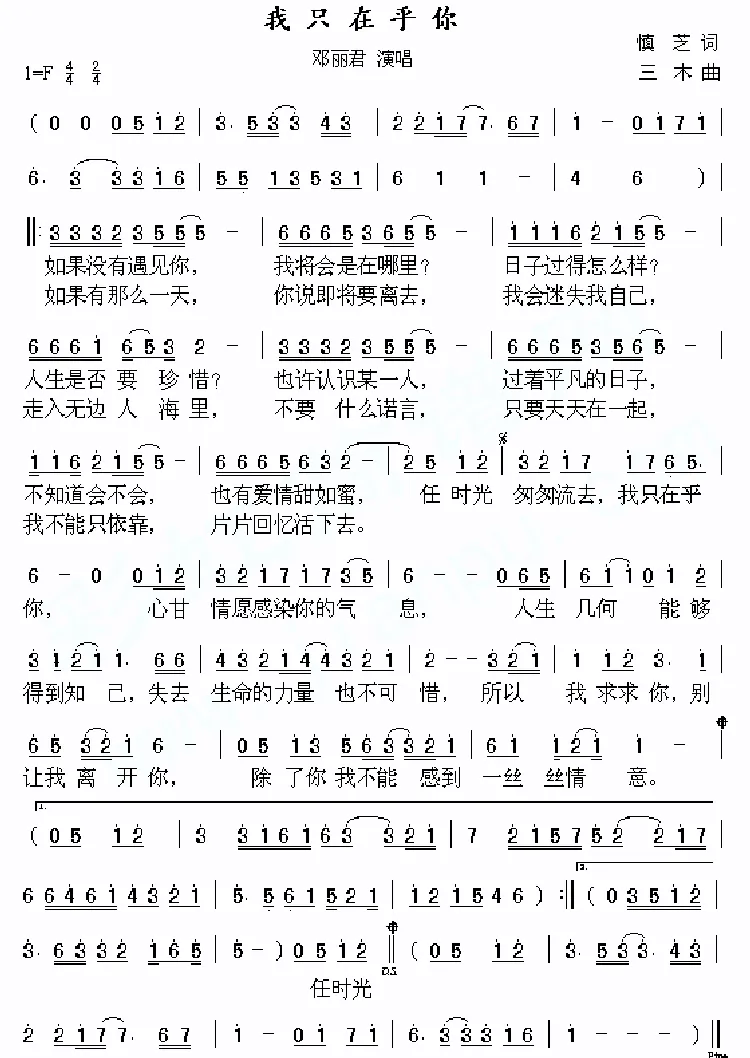 我只在乎你
慎 芝 词
邓丽君 演唱
1=F 4/4 2/4
三 木 曲
( 0 0 0 5 1 2 | 3. 5 3 3 4 3 | 2 2 1 7 7. 6 7 | 1 - 0 1 7 1 |
6. 3 3 3 1 6 | 5 5 1 3 5 3 1 | 6 1 1 - | 4 6 )
‖: 3 3 3 2 3 5 5 5 - | 6 6 6 5 3 6 5 5 - | 1 1 1 6 2 1 5 5 - |
如果没有遇见你， 我将会是在哪里？ 日子过得怎么样？
如果有那么一天， 你说即将要离去， 我会迷失我自己，
6 6 6 1 6 5 3 2 - | 3 3 3 2 3 5 5 5 - | 6 6 6 5 3 5 6 5 - |
人生是否 要 珍 惜？ 也许认识某一人， 过着平凡的日子，
走入无边 人 海 里， 不要 什么诺言， 只要天天在一起，
1 1 6 2 1 5 5 - | 6 6 6 5 6 3 2 - | 2 5 1 2 | 3 2 1 7 1 7 6 5. |
不知道会不会， 也有爱情甜如蜜， 任 时光 匆匆流去，我只在乎
我不能只依靠， 片片回忆活下去。
6 - 0 0 1 2 | 3 2 1 7 1 7 3 5 | 6 - - 0 6 5 | 6 1 1 0 1 2 |
你， 心甘 情愿感染你的气 息， 人生 几何 能够
3 1 2 1 1. 6 6 | 4 3 2 1 4 4 3 2 1 | 2 - - 3 2 1 | 1 1 2 3. 1 |
得到知 己，失去 生命的力量 也不可 惜， 所以 我 求求 你，别
6 5 3 2 1 6 - | 0 5 1 3 5 6 3 3 2 1 | 6 1 1 2 1 | 1 - - |
让我 离 开你， 除 了你 我不能 感到 一丝 丝情 意。
1.
( 0 5 1 2 | 3 3 1 6 1 6 3 3 2 1 | 7 2 1 5 7 5 2 2 1 7 |
2.
6 6 4 6 1 4 3 2 1 | 5. 5 6 1 5 2 1 | 1 2 1 5 4 6 ) :‖ ( 0 3 5 1 2 |
3. 6 3 3 2 1 6 5 | 5 - ) 0 5 1 2 ‖ ( 0 5 1 2 | 3. 5 3 3. 4 3 |
D.S
任时光
2 2 1 7 7. 6 7 | 1 - 0 1 7 1 | 6. 3 3 3 1 6 | 1 - - - )